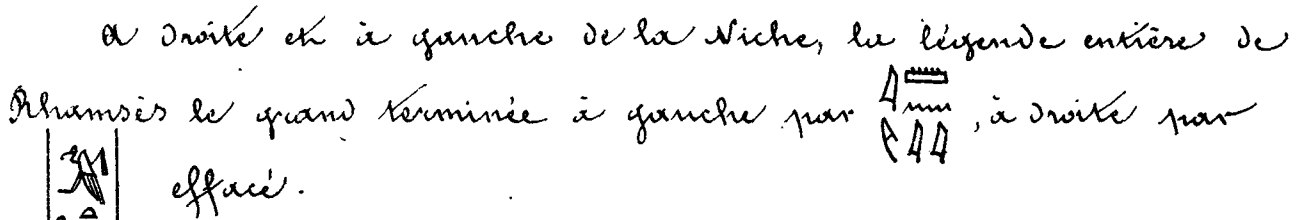 a droite et à gauche de la Niche, la légende entière de
Rhamsès le grand terminée à gauche par 𓇋𓏠𓈖 , à droite par
effacé.